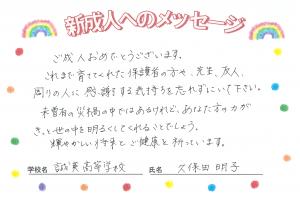 新成人へのメッセージ
ご成人おめでとうございます。
これまで育ててくれた保護者の方や、先生、友人、
周りの人に感謝する気持ちを忘れずにいて下さい。
未曽有の災禍の中ではあるけれど、あなた方の力が
きっと世の中を明るくしてくれることでしょう。
輝やかしい将来とご健康と祈っています。
学校名 誠英高等学校 氏名 久保田明子